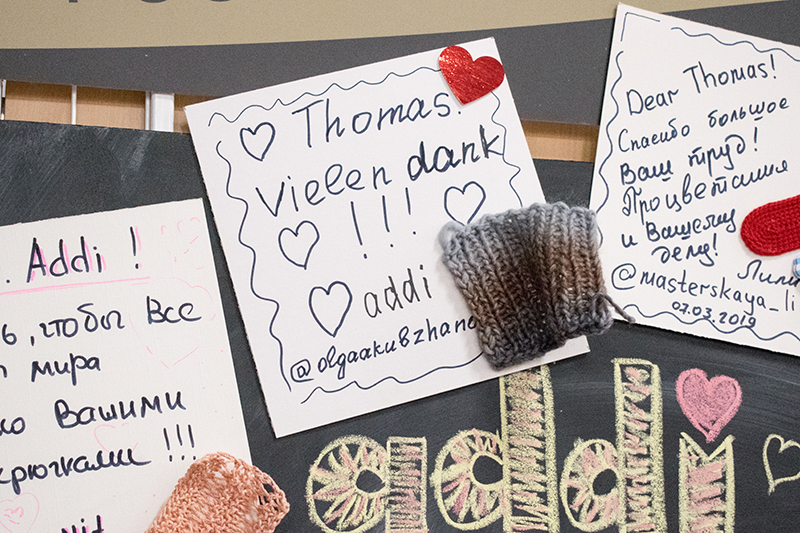 . Addi !
, чтобы все
мира
Вашими
крючками !!!
Thomas!
Vielen dank
!!!
addi
Dear Thomas!
Спасибо большое
Ваш труд!
Процветания
и Вашему
делу!
Лили
@masterskaya_li
07.03.2019
addi